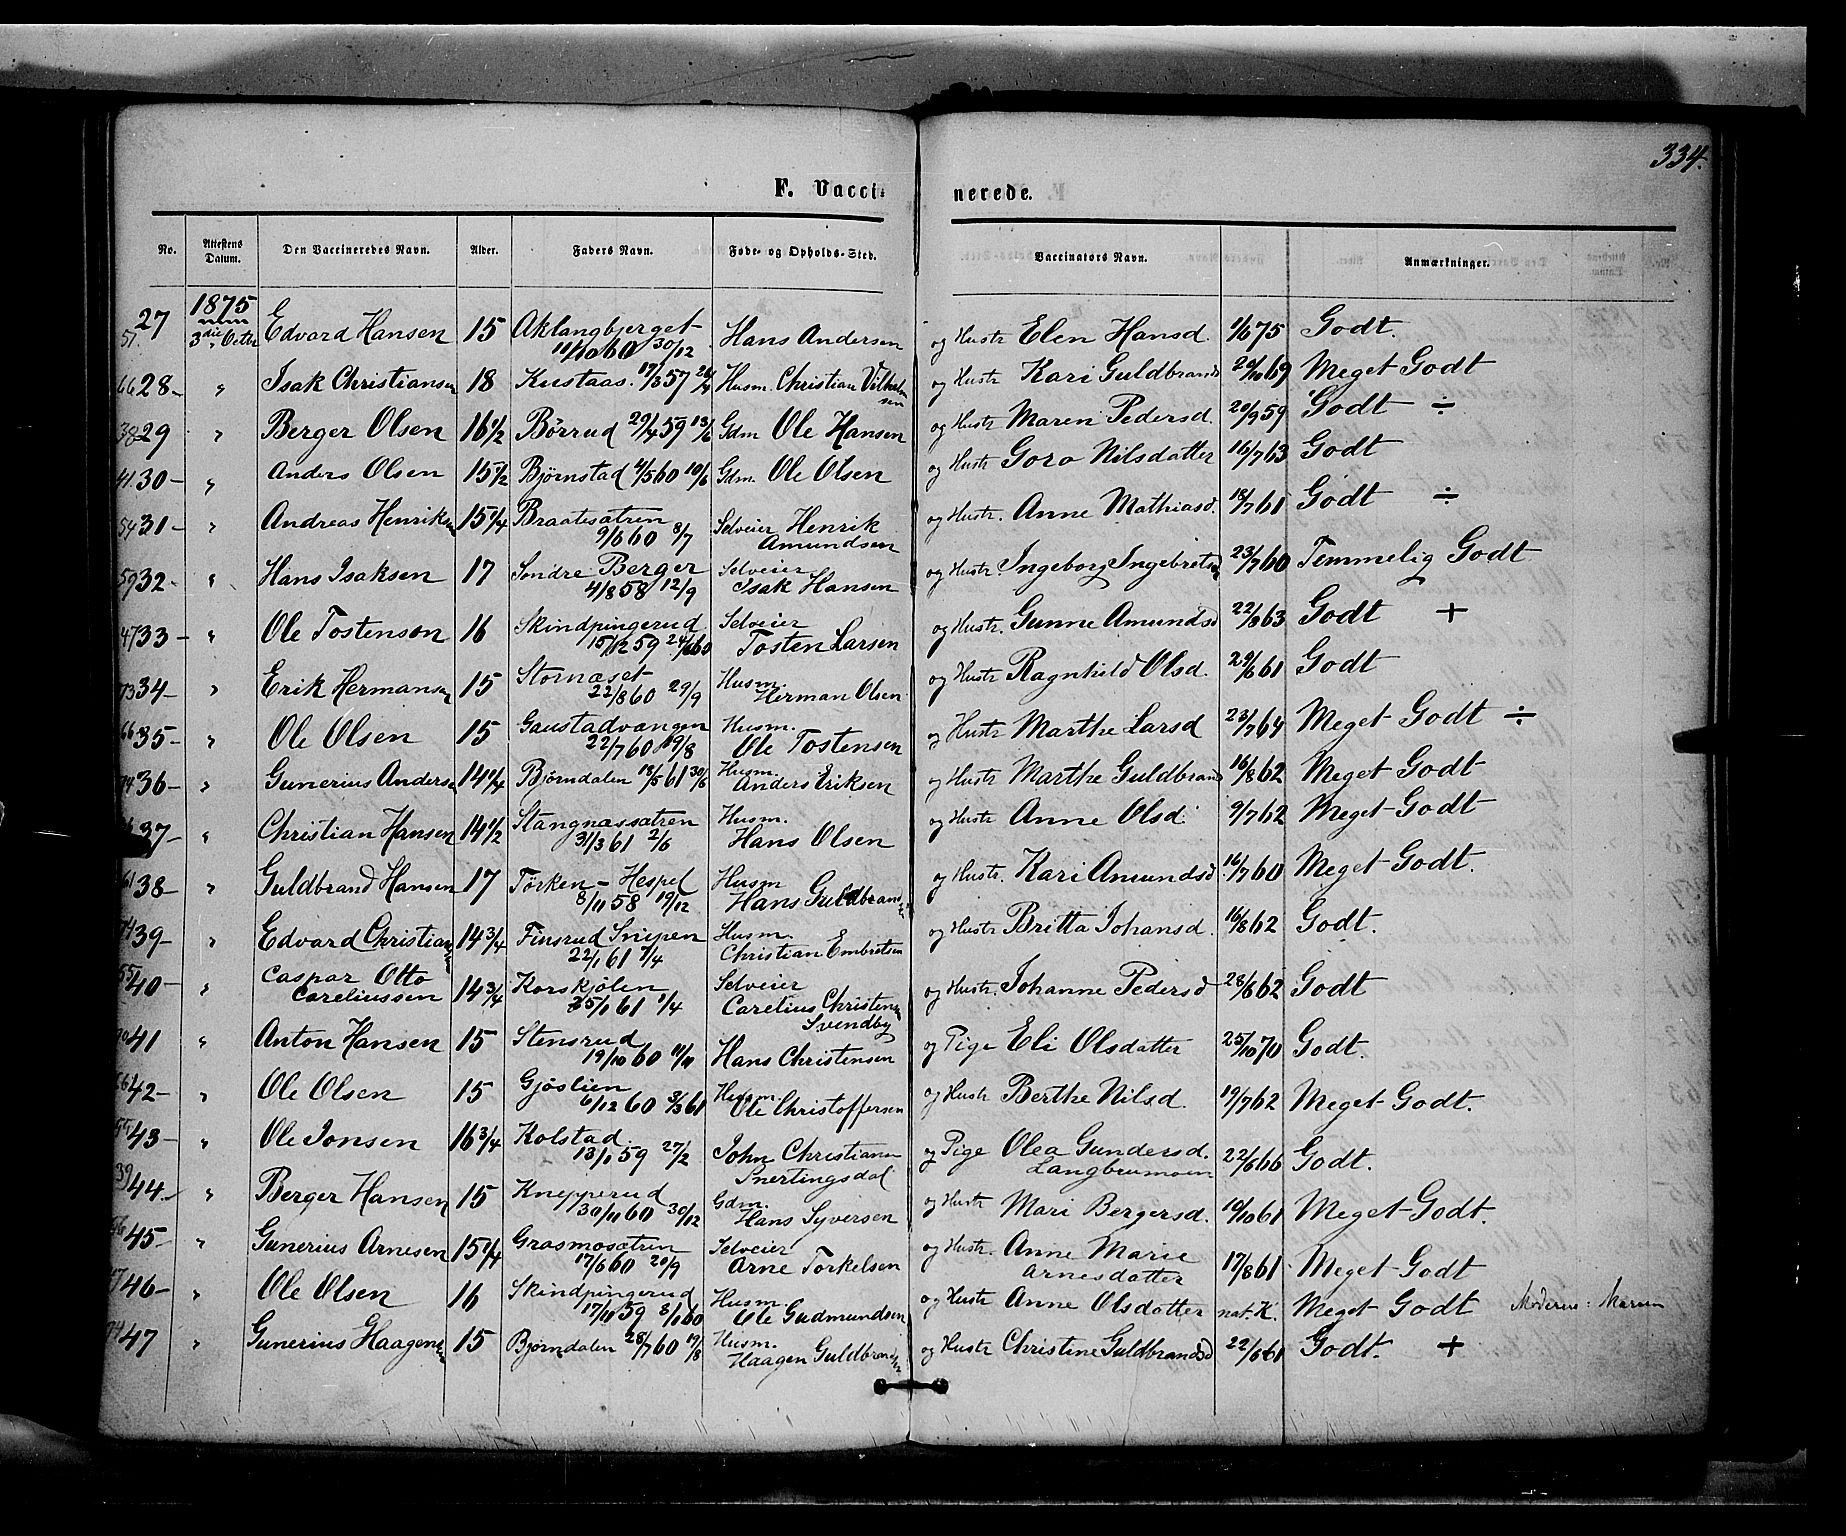 334.
F. Vacci- nerede.
No. Attestens Datum. Den Vaccineredes Navn. Alder. Faders Navn. Føde- og Opholds-Sted. Vaccinators Navn. Anmærkninger.
1875
27 3die Octbr Edvard Hansen 15 Aklangbjerget Hans Andersen og Hustr Elen Hansd. 1/6 75 Godt.
57. 11/10 60 30/12
66 28- " Isak Christiansen 18 Kustaas. 17/3 57 Husm. Christian Vilhelmsen og Hustr Kari Guldbrands 29/10 69 Meget Godt
38 29 " Berger Olsen 16 1/2 Børrud 29/4 59 13/6 Gdm Ole Hansen og Hustr Maren Pedersd. 20/9 59 Godt ÷
41 30- " Anders Olsen 15 1/2 Bjørnstad 4/5 60 10/6 Gdm. Ole Olsen og Hustr Goro Nilsdatter 16/7 63 Godt
54 31- " Andreas Henriksen 15 1/4 Braatesætren Selveier Henrik og Hustr. Anne Mathiasd. 18/7 61 Godt ÷
9/6 60 8/7 Amundsen
59 32- " Hans Isaksen 17 Søndre Berger Selveier og Hustr. Ingeborg Ingebretsd 23/7 60 Temmelig Godt
4/8 58 12/9 Isak Hansen
47 33- " Ole Tostenson 16 Skindpingerud Selveier og Hustr. Gunne Amundsd 22/8 63 Godt +
15/12 59 24/6 60 Tosten Larsen
73 34- " Erik Hermansen 15 Stornæset Husm. og Hustr Ragnhild Olsd. 29/6 61 Godt
22/8 60 29/9 Herman Olsen
66 35- " Ole Olsen 15 Gaustadvangen Husm. og Hustr Marthe Larsd 23/7 64 Meget Godt ÷
22/7 60 19/8 Ole Tostensen
74 36- " Gunerius Andersen 14 1/4 Bjørndalen 18/5 61 30/6 Husm. og Hustr Marthe Guldbrand 16/8 62 Meget Godt
Anders Eriksen
37- " Christian Hansen 14 1/2 Stangnæssætren Husm. og Hustr Anne Olsd. 9/7 62 Meget Godt
31/3 61 2/6 Hans Olsen
61 38- " Guldbrand Hansen 17 Tørken- Hespel Husm og Hustr. Kari Amundsd 16/7 60 Meget Godt.
8/11 58 19/12 Hans Guldbrands
74 39- " Edvard Christian 14 3/4 Finsrud Snipen Husm. og Hustr Britta Johansd. 16/8 62 Godt.
22/1 61 7/4 Christian Embretsen
55 40- " Caspar Otto 14 3/4 Korskjølen Selveier og Hustr. Johanne Pedersd 28/6 62 Godt
Careliussen 25/1 61 1/4 Carelius Christens
Svendby
41 " Anton Hansen 15 Stensrud og Pige Eli Olsdatter 25/10 70 Godt.
19/10 60 11/11 Hans Christensen
42- " Ole Olsen 15 Gjøslien Husm og Hustr Berthe Nilsd. 19/7 62 Meget Godt.
6/12 60 3/3 61 Ole Christoffersen
43- " Ole Jonsen 16 3/4 Kolstad. John Christiansen og Pige Olea Gundersd. 22/6 66 Godt.
13/1 59 27/2 Snertingsdal Langbrumoen
39 44- " Berger Hansen 15 Knepperud Gdm. og Hustr Mari Bergersd. 19/10 61 Meget Godt.
30/11 60 30/12 Hans Syversen
45- " Gunerius Arnesen 15 1/4 Grasmosætren Selveier og Hustr. Anne Marie 17/8 61 Meget Godt
17/6 60 20/9 Arne Torkelsen Arnesdatter
46- " Ole Olsen 16 Skindpingerud Husm. og Hustr Anne Olsdatter nat. K. Meget Godt Moderen: Maren
17/11 59 8/1 60 Ole Gudmundsen
74 47 " Gunerius Haagensen 15 Bjørndalen 28/7 60 19/8 Husm. og Hustr Christine Guldbrandsd 22/6 61 Godt. +
Haagen Guldbrands